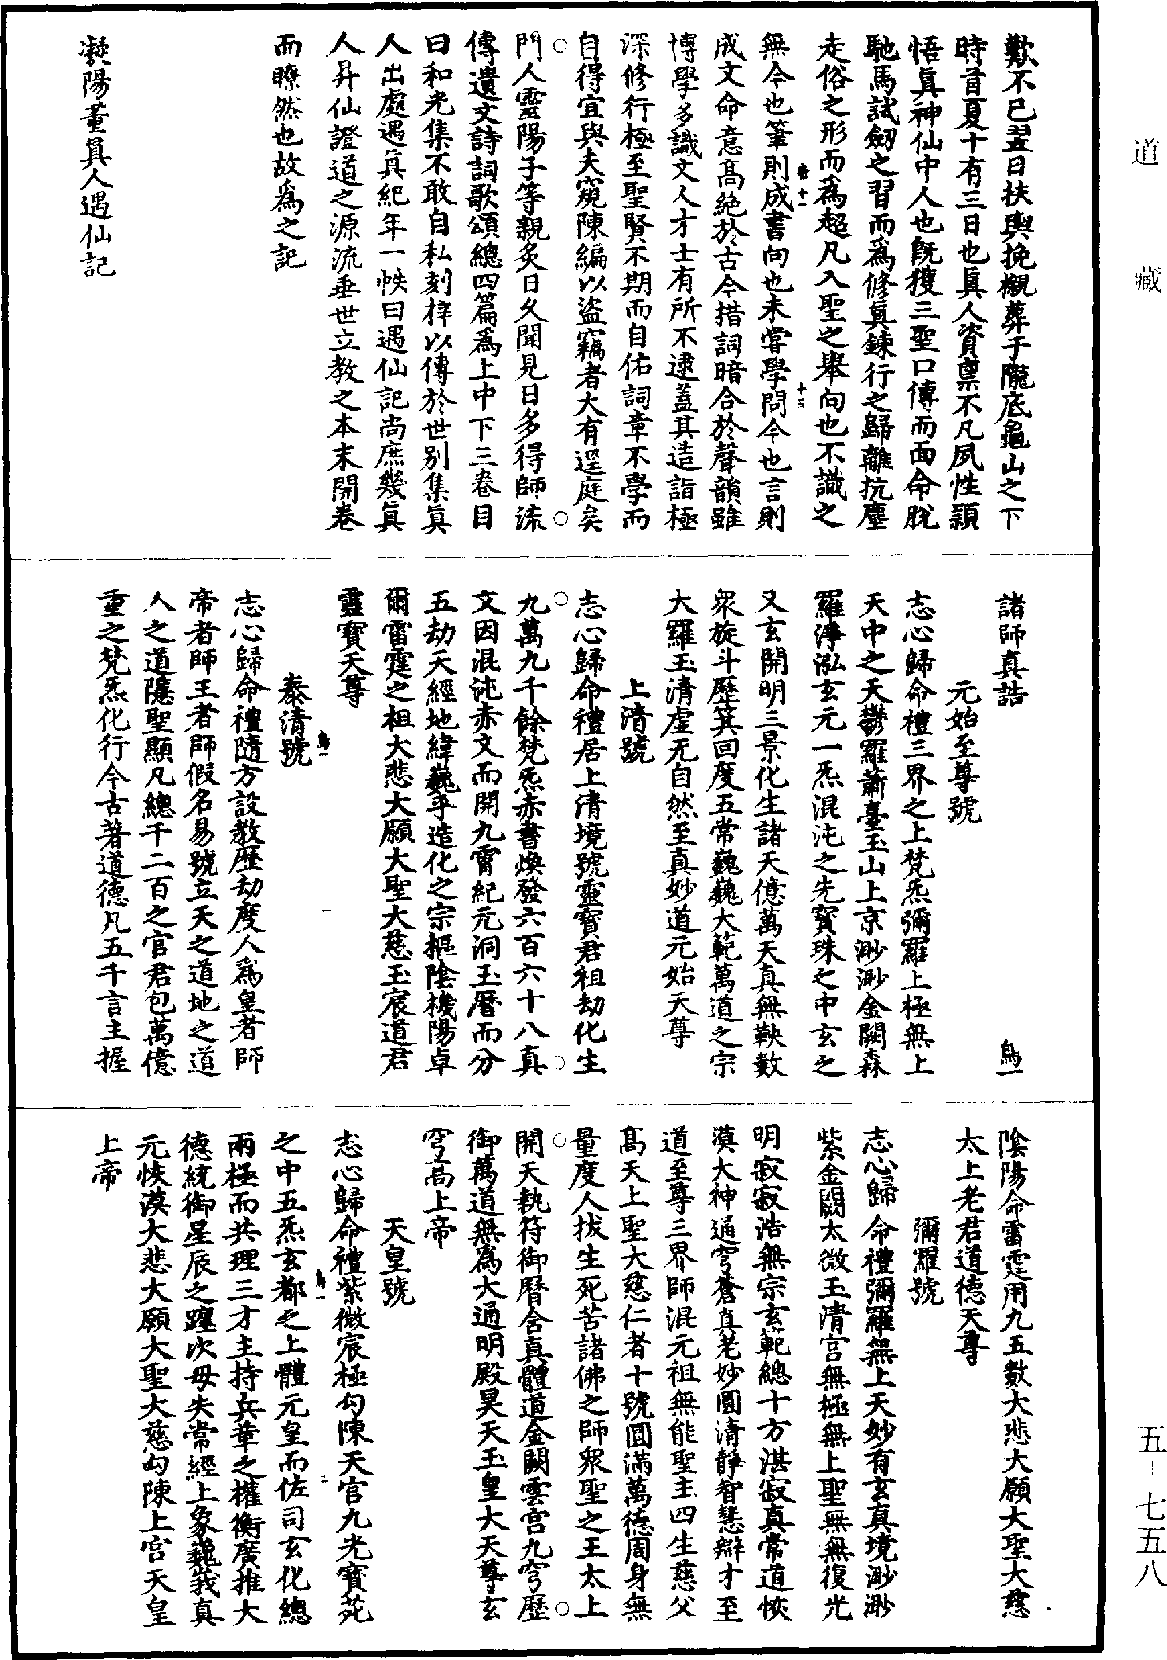 道藏
五-七五八
歎不已翌日扶輿挽櫬葬于隴底龜山之下
時首夏十有三日也真人資稟不凡夙性穎
悟真神仙中人也旣獲三聖口傳而面命脫
馳馬試劒之習而爲修真鍊行之歸離抗塵
走俗之形而爲超凡入聖之舉向也不識之
無今也筆則成書向也未嘗學問今也言則
成文命意高絕於古今措詞暗合於聲韻雖
博學多識文人才士有所不逮蓋其造詣極
深修行極至聖賢不期而自佑詞章不學而
自得宜與夫窺陳編以盜竊者大有逕庭矣
門人靈陽子等親炙日久聞見日多得師法
傳遺文詩詞歌頌總四篇爲上中下三卷目
曰和光集不敢自私刻梓以傳於世別集真
人出處遇真紀年一帙曰遇仙記尚庶幾真
人昇仙證道之源流垂世立教之本末開卷
而瞭然也故爲之記
凝陽董真人遇仙記
諸師真誥 鳥一
元始至尊號
志心歸命禮三界之上梵炁彌羅上極無上
天中之天鬱羅蕭臺玉山上京渺渺金闕森
羅淨泓玄元一炁混沌之先寶珠之中玄之
又玄開明三景化生諸天億萬天真無鞅數
衆旋斗歷箕回度五常巍巍大範萬道之宗
大羅玉清虛无自然至真妙道元始天尊
上清號
志心歸命禮居上清境號靈寶君祖劫化生
九萬九千餘梵炁赤書煥發六百六十八真
文因混沌赤文而開九霄紀元洞玉曆而分
五劫天經地緯巍乎造化之宗樞陰機陽卓
爾雷霆之祖大悲大願大聖大慈玉宸道君
靈寶天尊
泰清號
志心歸命禮隨方設教歷劫度人爲皇者師
帝者師王者師假名易號立天之道地之道
人之道隱聖顯凡總千二百之官君包萬億
重之梵炁化行今古著道德凡五千言主握
陰陽命雷霆用九五數大悲大願大聖大慈
太上老君道德天尊
彌羅號
志心歸命禮彌羅無上天妙有玄真境渺渺
紫金闕太微玉清宮無極無上聖無無復光
明寂寂浩無宗玄範總十方湛寂真常道恢
漠大神通穹蒼真老妙圓清靜智慧辯才至
道至尊三界師混元祖無能聖主四生慈父
高天上聖大慈仁者十號圓滿萬德周身無
量度人拔生死苦諸佛之師衆聖之王太上
開天執符御曆含真體道金闕雲宮九穹歷
御萬道無爲大通明殿昊天玉皇大天尊玄
穹高上帝
天皇號
志心歸命禮紫微宸極勾陳天宮九光寶苑
之中五炁玄都之上體元皇而佐司玄化總
兩極而共理三才主持兵革之權衡廣推大
德統御星辰之躔次毋失常經上象巍峩真
元恢漠大悲大願大聖大慈勾陳上宮天皇
上帝